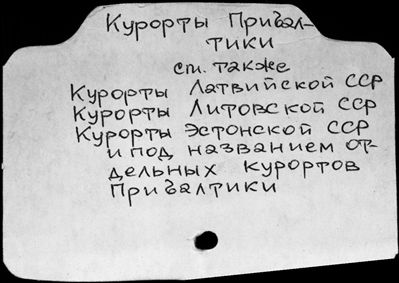 Курорты Прибал-
тики
см. также
Курорты Латвийской ССР
Курорты Литовской ССР
Курорты Эстонской ССР
и под названием от-
дельных курортов
Прибалтики